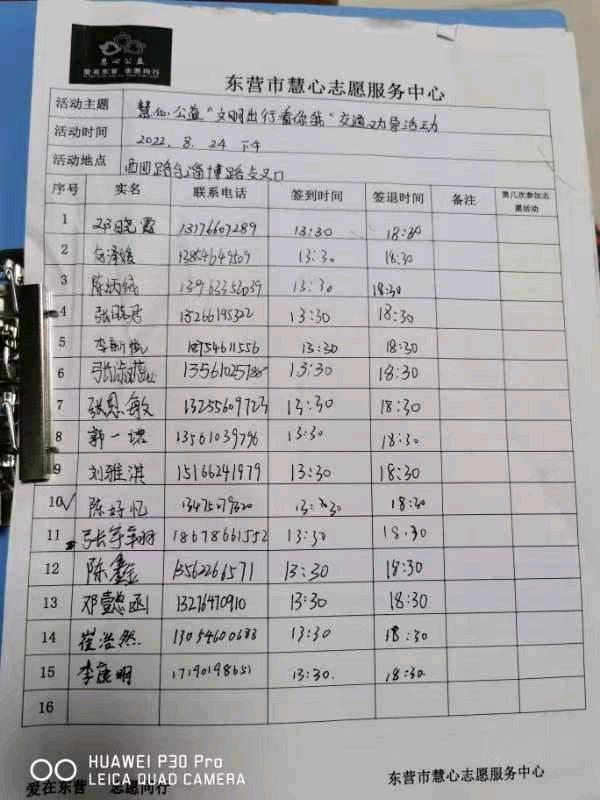 慧心公益
爱在东营 志愿同行
东营市慧心志愿服务中心
活动主题 慧心公益"文明出行看你我"交通劝导活动
活动时间 2022.8.24 下午
活动地点 西四路与淄博路交叉口
序号 实名 联系电话 签到时间 签退时间 备注 第几次参加志愿活动
1 邓晓霞 13176607289 13:30 18:30
2 13854649509 13:30 18:30
3 13:30 18:30
4 张晓君 13:30 18:30
5 18754611556 13:30 18:30
6 13:30 18:30
7 张恩敏 13255609723 13:30 18:30
8 郭一珺 13561039796 13:30 18:30
9 刘雅淇 15166241979 13:30 18:30
10 陈好忆 13:30 18:30
11 18678661552 13:30 18:30
12 陈鑫 13562266571 13:30 18:30
13 邓懿函 13276470910 13:30 18:30
14 崔浩然 13054600683 13:30 18:30
15 李能明 17190198651 13:30 18:30
16
爱在东营 志愿同行
东营市慧心志愿服务中心
HUAWEI P30 Pro
LEICA QUAD CAMERA